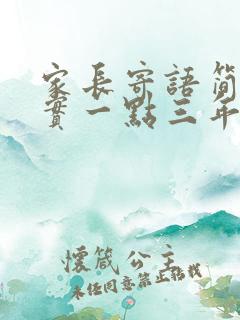 家長寄語簡
實一點三年
懷箴公主
未經同意禁止轉載